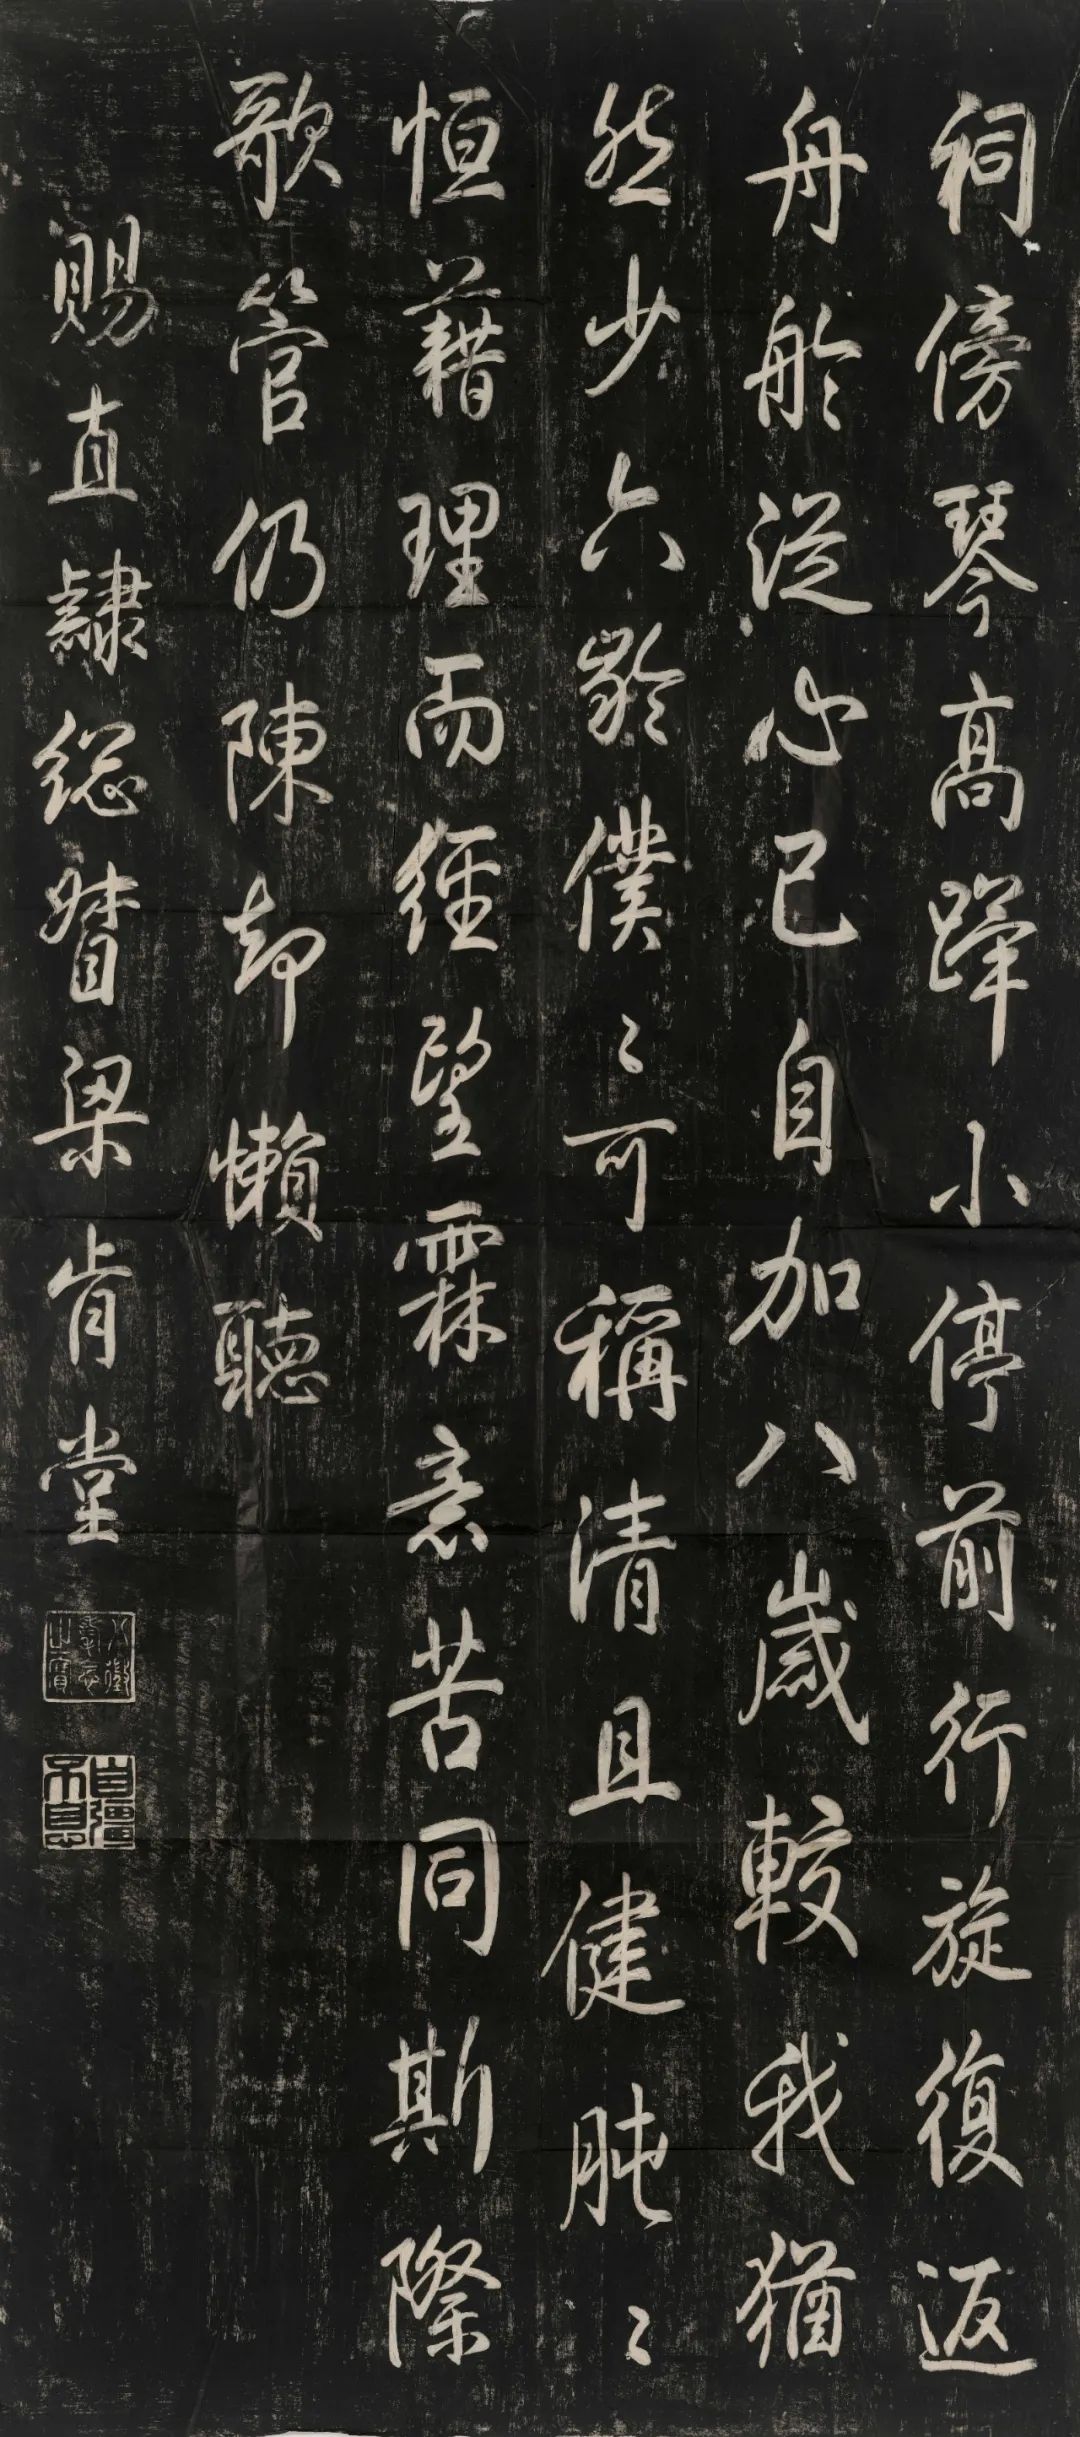 祠傍琴高蹕小停前行旋復返
舟舲從心已自加八歲較我猶
然少六齡僕〻可稱清且健肫〻
恒藉理而經望霖意苦同斯際
歌管仍陳却懶聽
賜直隸總督梁肯堂
八徵耄念之寶
自彊不息